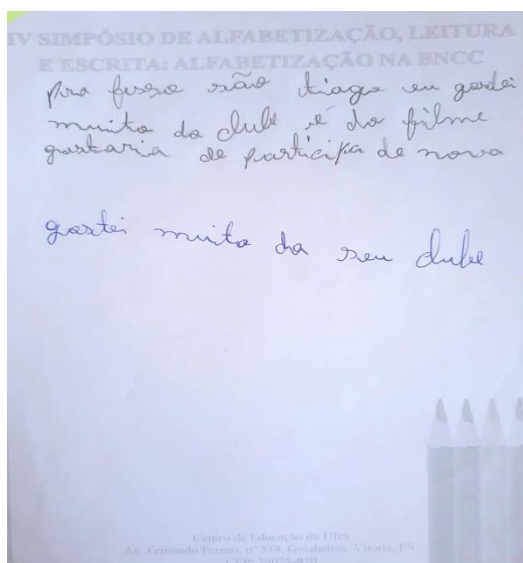 IV SIMPÓSIO DE ALFABETIZAÇÃO, LEITURA
E ESCRITA: ALFABETIZAÇÃO NA BNCC
pra fesso são tiago eu gostei
muito do clube é do filme
gostaria de participa de novo
gostei muito da seu clube
Centro de Educação da Ufes
Av. Fernando Ferrari, nº 514, Goiabeiras, Vitória, ES
CEP 29075-910